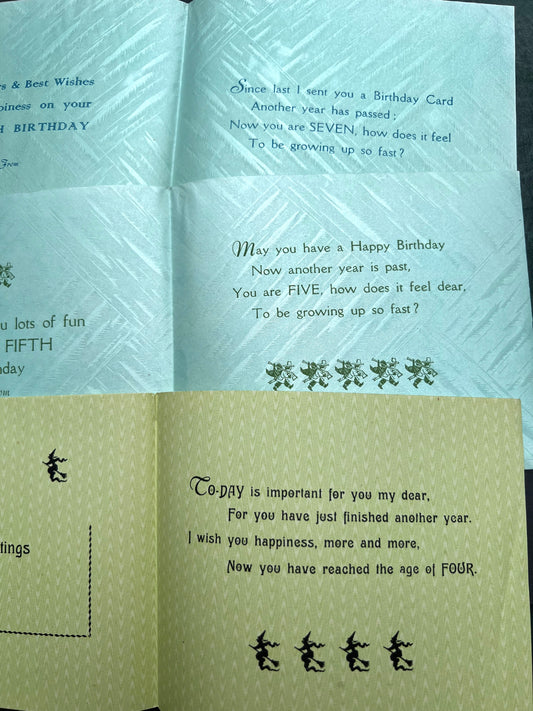 s & Best Wishes
piness on your
H BIRTHDAY
From
Since last I sent you a Birthday Card
Another year has passed;
Now you are SEVEN, how does it feel
To be growing up so fast?
u lots of fun
FIFTH
hday
om
May you have a Happy Birthday
Now another year is past,
You are FIVE, how does it feel dear,
To be growing up so fast?
tings
TO-DAY is important for you my dear,
For you have just finished another year.
I wish you happiness, more and more,
Now you have reached the age of FOUR.